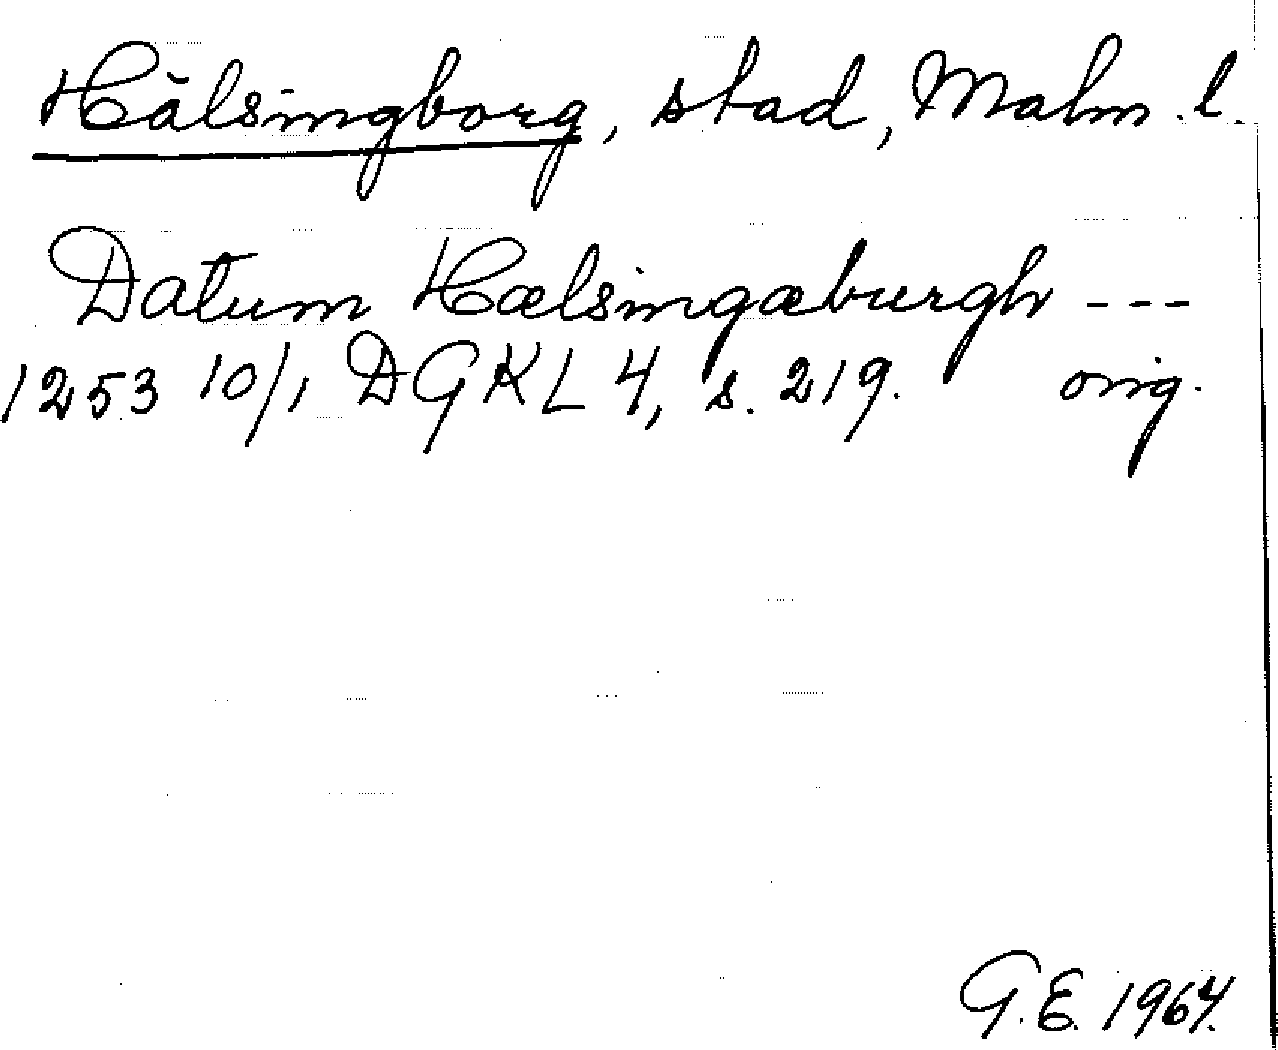 Hälsingborg, stad, Malm. l.
Datum Hælsingæburgh ---
1253 10/1 DGKL 4, s. 219. orig.
G.E. 1964.